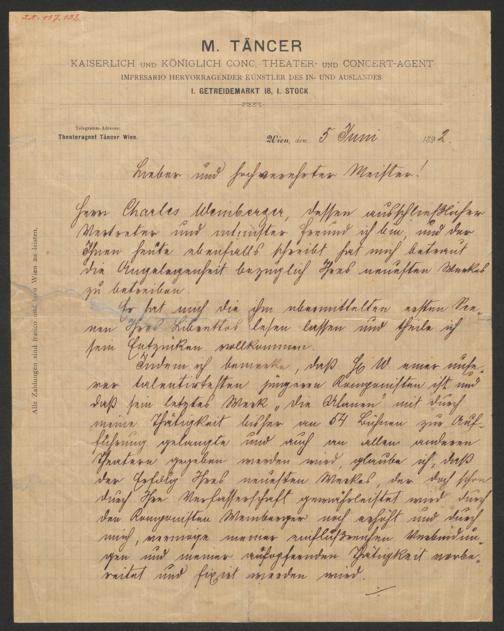 M. TÄNCER
KAISERLICH UND KÖNIGLICH CONC. THEATER- UND CONCERT-AGENT
IMPRESARIO HERVORRAGENDER KÜNSTLER DES IN- UND AUSLANDES
I. GETREIDEMARKT 18, I. STOCK.
Telegramm-Adresse:
Theateragent Täncer Wien.
Wien, den 5 Juni 1892.
Lieber und hochverehrter Meister!
Herr Charles Weinberger, dessen ausschließlicher
Vertreter und intimster Freund ich bin, und der
Ihnen heute ebenfalls schreibt hat mich betraut
die Angelegenheit bezüglich Ihres neuesten Werkes
zu betreiben.
Er hat mich die ihm übermittelten ersten Sce-
nen Ihres Librettos lesen lassen und theile ich
sein Entzücken vollkommen.
Indem ich bemerke, daß H. W. einer unse-
rer talentirtesten jüngeren Komponisten ist und
daß sein letztes Werk "Die Ulanen" mit durch
meine Thätigkeit bisher an 54 Bühnen zur Auf-
führung gelangte und auch an allen anderen
Theatern gegeben werden wird, glaube ich, daß
der Erfolg Ihres neuesten Werkes, der doch schon
durch Ihre Verfasserschaft gewährleistet wird durch
den Komponisten Weinberger noch erhöht und durch
mich, vermöge meiner einflußreichen Verbindun-
gen und meiner aufopfernden Thätigkeit vorbe-
reitet und fixirt werden wird.
Alle Zahlungen sind franco und in Wien zu leisten.